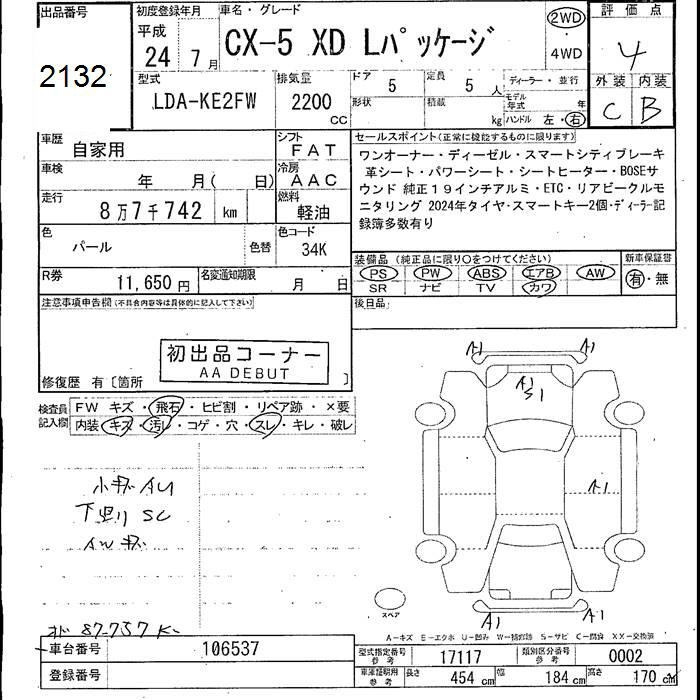 出品番号
2132
初度登録年月
平成
24 7月
車名・グレード
CX-5 XD Lパッケージ
2WD
・
4WD
評価点
4
外装 内装
C B
型式
LDA-KE2FW
排気量
2200 CC
ドア
5
定員
5 人
形状
積載
kg
ディーラー・並行
モデル年式 年
ハンドル 左・右
車歴
自家用
シフト
FAT
車検
年 月( 日)
冷房
AAC
走行
8万7千742 km
燃料
軽油
色
パール
色替
色コード
34K
R券
11,650円
名変通知期限
月 日
セールスポイント(正常に機能するものに限ります)
ワンオーナー・ディーゼル・スマートシティブレーキ
革シート・パワーシート・シートヒーター・BOSEサ
ウンド 純正19インチアルミ・ETC・リアビークルモ
ニタリング 2024年タイヤ・スマートキー2個・ディーラー記
録簿多数有り
装備品(純正品に限り○をつけてください)
PS PW ABS エアB AW
SR ナビ TV カワ
新車保証書
有・無
後日品
注意事項申告欄(不具合内容等は具体的に記入して下さい)
初出品コーナー
AA DEBUT
修復歴 有〔箇所 〕
検査員記入欄
FW キズ・飛石・ヒビ割・リペア跡・×要
内装・キズ・汚れ・コゲ・穴・スレ・キレ・破レ
小キズ AU
下廻り SC
AWキズ
87-757K-
A1 A1
A1
S1
A1
A1 A1
スペア
A-キズ E-エクボ U-凹み W-補修跡 S-サビ C-腐食 XX-交換済
車台番号
106537
登録番号
型式指定番号
参考
17117
類別区分番号
参考
0002
車庫証明用
参考
長さ 454 cm 幅 184 cm 高さ 170 cm